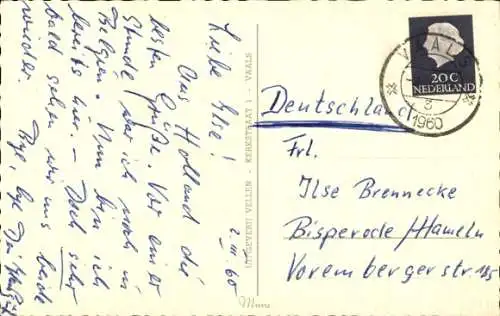 2.III.60
Liebe Ilse!
Aus Holland die
besten Grüße. Vor einer
Stunde war ich noch in
Belgien. Nun bin ich
bereits hier. – Doch sehr
bald sehen wir uns beide
wieder.
Bye, bye
UITGEVERIJ VELLEN - KERKSTRAAT 1 - VAALS
VAALS
1960
20 C
NEDERLAND
Deutschland
Frl.
Ilse Brennecke
Bisperode/Hameln
Voremberger str.